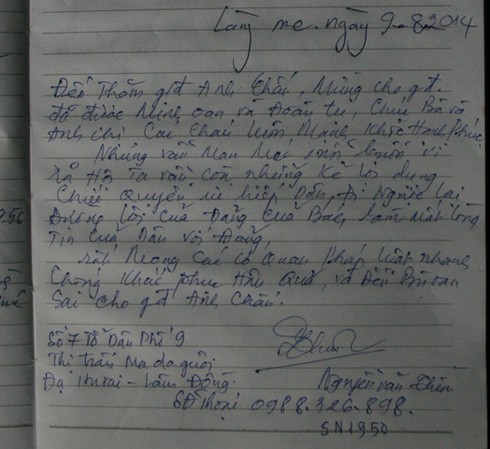 Làng me. ngày 9-8-2014
Đến Thăm gđ Anh Chấn, Mừng cho gđ.
đã được Minh oan và Đoàn tụ, Chúc Bà và
Anh chị Các Cháu luôn Mạnh Khỏe Hạnh Phúc.
Nhưng vẫn Man Mác buồn vì
Xã Hội Ta vẫn còn những Kẻ lợi dụng
Chức Quyền ức hiếp Dân, đi Ngược lại
Đường lối của Đảng của Bác làm Mất lòng
Tin của Dân với Đảng.
rất Mong Các cơ Quan Pháp luật nhanh
Chóng Khắc phục Hậu Quả, và Đền
Sai cho gđ Anh Chấn.
Số 7 Tổ Dân Phố 9
Thị trấn Ma đa guôi
Đạ Huoai - Lâm Đồng.
Nguyễn văn
Số Đ Thoại 0988.326.898.
SN 1950